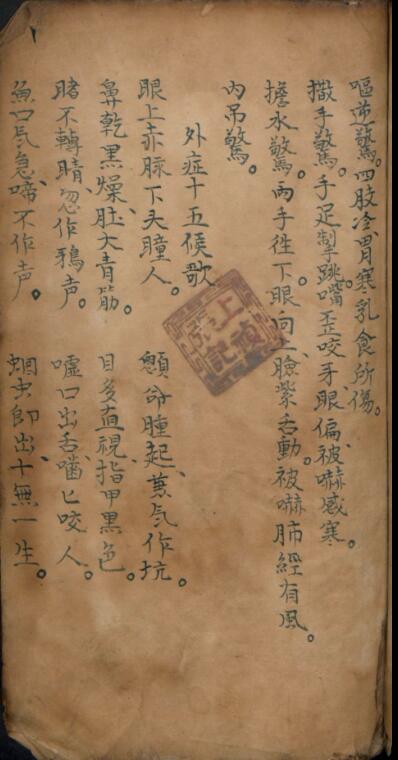 嘔逆驚。四肢冷、胃寒乳食所傷。
撒手驚。手足掣跳嘴歪咬牙、眼偏、被嚇感寒。
擔水驚。両手徃下。眼向上、臉紫舌動。被嚇肺經有風。
內吊驚。
外症十五候歌
眼上赤脉下夹瞳人。 顖命腫起、兼気作坑。
鼻乾黒燥、肚大青筋。 目多直視、指甲黒色。
睹不轉睛、忽作鴉声。 噓口出舌、嚙匕咬人。
魚口気急、啼不作声。 蛔虫即出、十無一生。